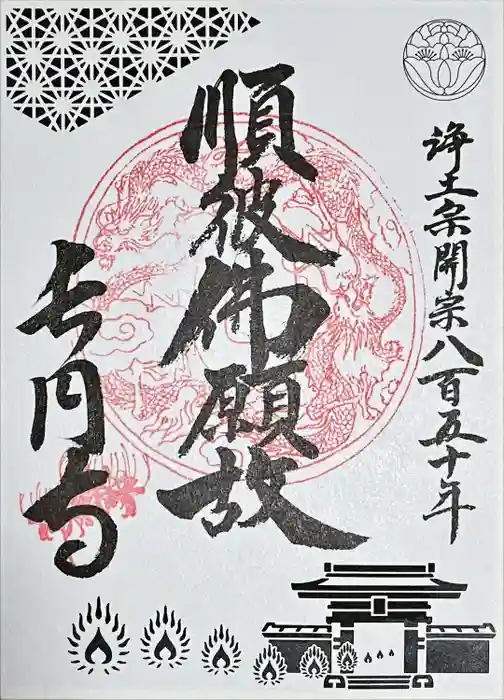 浄土宗開宗八百五十年
順彼佛願故
长円寺